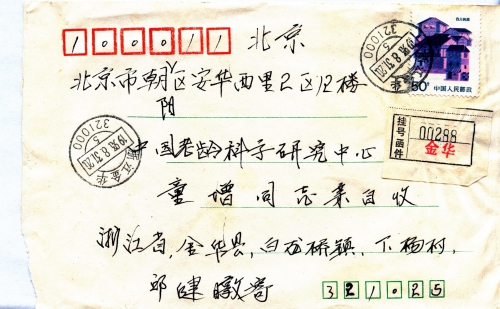 100011 北京
北京市朝阳区安华西里2区12楼
中国老龄科学研究中心
童增同志亲自收
浙江省,金华县,白龙桥镇,下杨村,
邱健
寄
321025
50分 中国人民邮政
挂号函件
00288
金华
321000
1998.8.31.20
浙江金华